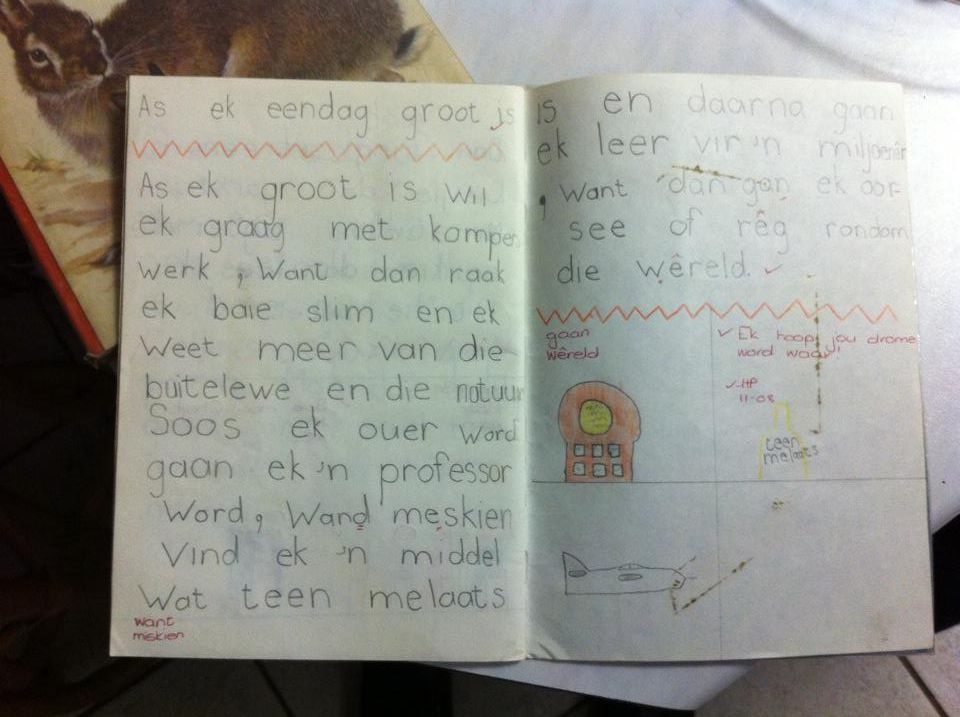 As ek eendag groot is
As ek groot is wil
ek graag met komper
werk, Want dan raak
ek baie slim en ek
Weet meer van die
buitelewe en die natuur
Soos ek ouer word
gaan ek 'n professor
Word, Wand meskien
Vind ek 'n middel
Wat teen melaats
want
miskien
is en daarna gaan
ek leer vir 'n miljoenêr
, Want dan gan ek oor-
see of rêg rondom
die wêreld.
gaan
wêreld
Ek hoop jou drome
word waar!
HP
11-08
teen
melaats